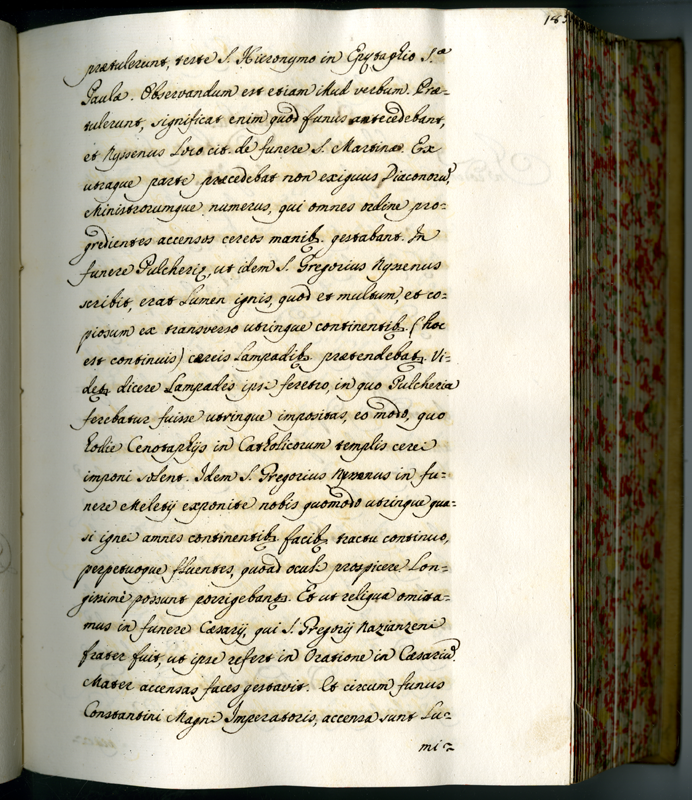 185
prætulerunt, teste S. Hieronymo in Epytaphio S.æ
Paulæ. Observandum est etiam illud verbum. Præ=
tulerunt, significat enim quod funus antecedebant,
et Nyssenus Loco cit. de funere S. Martinæ. Ex
utraque parte præcedebat non exiguus Diaconorũ,
Ministrorumque numerus, qui omnes ordine pro=
gredientes accensos cereos manibꝫ gestabant. In
funere Pulcheriæ, ut idem S. Gregorius Nyssenus
scribit, erat Lumen ignis, quod et multum, et co=
piosum ex transverso utrinque continentibꝫ (hoc
est continuis) cæreis Lampadibꝫ prætendebatꝫ. Vi=
detꝫ dicere Lampades ipsi feretro, in quo Pulcheria
ferebatur fuisse utrinque impositas, eo modo, quo
hodie Cenotaphijs in Catholicorum templis cerei
imponi solent. Idem S. Gregorius Nyssenus in fu=
nere Meletij exponite nobis quomodo utrinque qua=
si ignei amnes continentibꝫ facibꝫ tractu continuo,
perpetuoque fluentes, quoad oculi prospicere Lon=
gissimè possunt porrigebantꝫ. Et ut reliqua omitta=
mus in funere Cæsarij, qui S. Gregorij Nazianzeni
frater fuit, ut ipse refert in Oratione in Cæsariũ.
Mater accensas faces gestavit. Et circum funus
Constantini Magni Imperatoris, accensa sunt Lu=
mi=